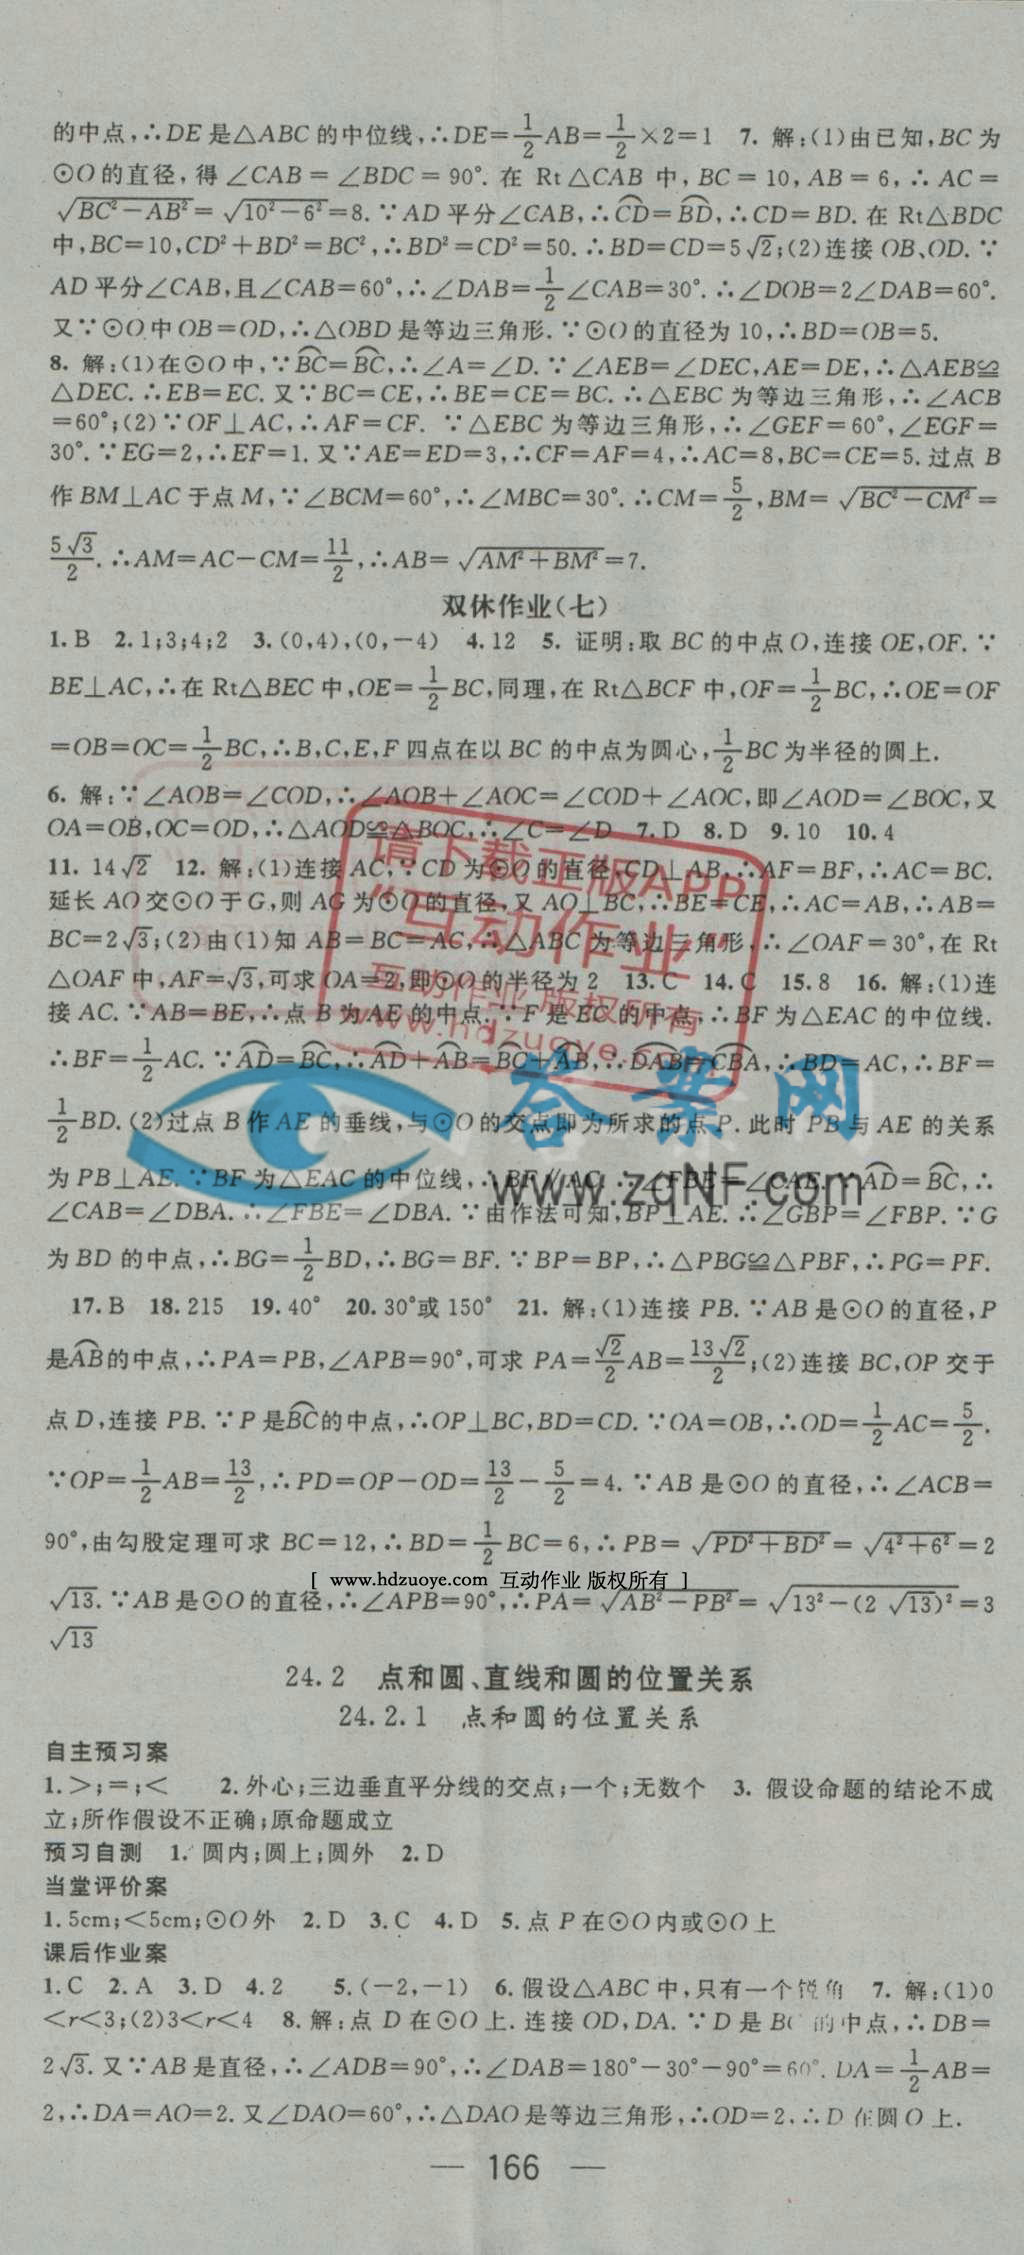 的中点,∴DE是△ABC的中位线,∴DE=1/2AB=1/2×2=1 7. 解:(1)由已知,BC为
⊙O的直径,得∠CAB=∠BDC=90°.在Rt△CAB中,BC=10,AB=6,∴AC=
√(BC²-AB²)=√(10²-6²)=8.∵AD平分∠CAB,∴⌒CD=⌒BD,∴CD=BD.在Rt△BDC
中,BC=10,CD²+BD²=BC²,∴BD²=CD²=50.∴BD=CD=5√2;(2)连接OB、OD.∵
AD平分∠CAB,且∠CAB=60°,∴∠DAB=1/2∠CAB=30°.∴∠DOB=2∠DAB=60°.
又∵⊙O中OB=OD,∴△OBD是等边三角形.∵⊙O的直径为10,∴BD=OB=5.
8. 解:(1)在⊙O中,∵⌒BC=⌒BC,∴∠A=∠D.∵∠AEB=∠DEC,AE=DE,∴△AEB≌
△DEC.∴EB=EC.又∵BC=CE,∴BE=CE=BC.∴△EBC为等边三角形,∴∠ACB
=60°;(2)∵OF⊥AC,∴AF=CF. ∵△EBC为等边三角形,∴∠GEF=60°,∠EGF=
30°.∵EG=2,∴EF=1.又∵AE=ED=3,∴CF=AF=4,∴AC=8,BC=CE=5.过点B
作BM⊥AC于点M,∵∠BCM=60°,∴∠MBC=30°.∴CM=5/2,BM=√(BC²-CM²)=
5√3/2.∴AM=AC-CM=11/2,∴AB=√(AM²+BM²)=7.
双休作业(七)
1.B 2.1;3;4;2 3.(0,4),(0,-4) 4.12 5. 证明:取BC的中点O,连接OE,OF.∵
BE⊥AC,∴在Rt△BEC中,OE=1/2BC,同理,在Rt△BCF中,OF=1/2BC,∴OE=OF
=OB=OC=1/2BC,∴B,C,E,F四点在以BC的中点为圆心,1/2BC为半径的圆上.
6. 解:∵∠AOB=∠COD,∴∠AOB+∠AOC=∠COD+∠AOC,即∠AOD=∠BOC,又
OA=OB,OC=OD,∴△AOD≌△BOC,∴∠C=∠D 7.D 8.D 9.10 10.4
11. 14√2 12. 解:(1)连接AC,∵CD为⊙O的直径,CD⊥AB,∴AF=BF,∴AC=BC.
延长AO交⊙O于G,则AG为⊙O的直径,又AO⊥BC,∴BE=CE,∴AC=AB,∴AB=
BC=2√3;(2)由(1)知AB=BC=AC,∴△ABC为等边三角形,∴∠OAF=30°,在Rt
△OAF中,AF=√3,可求OA=2,即⊙O的半径为2 13.C 14.C 15.8 16. 解:(1)连
接AC.∵AB=BE,∴点B为AE的中点.∵F是EC的中点,∴BF为△EAC的中位线.
∴BF=1/2AC.∵⌒AD=⌒BC,∴⌒AD+⌒AB=⌒BC+⌒AB,∴⌒DAB=⌒CBA,∴BD=AC,∴BF=
1/2BD.(2)过点B作AE的垂线,与⊙O的交点即为所求的点P.此时PB与AE的关系
为PB⊥AE.∵BF为△EAC的中位线,∴BF∥AC.∴∠FBE=∠CAE.∵⌒AD=⌒BC,∴
∠CAB=∠DBA.∴∠FBE=∠DBA.∵由作法可知,BP⊥AE.∴∠GBP=∠FBP.∵G
为BD的中点,∴BG=1/2BD,∴BG=BF.∵BP=BP,∴△PBG≌△PBF,∴PG=PF.
17.B 18.215 19.40° 20.30°或150° 21. 解:(1)连接PB.∵AB是⊙O的直径,P
是⌒AB的中点,∴PA=PB,∠APB=90°,可求PA=√2/2AB=13√2/2;(2)连接BC,OP交于
点D,连接PB.∵P是⌒BC的中点,∴OP⊥BC,BD=CD.∵OA=OB,∴OD=1/2AC=5/2.
∵OP=1/2AB=13/2,∴PD=OP-OD=13/2-5/2=4.∵AB是⊙O的直径,∴∠ACB=
90°,由勾股定理可求BC=12,∴BD=1/2BC=6,∴PB=√(PD²+BD²)=√(4²+6²)=2
[ www.hdzuoye.com 互动作业 版权所有 ]
√13.∵AB是⊙O的直径,∴∠APB=90°,∴PA=√(AB²-PB²)=√(13²-(2√13)²)=3
√13
24.2 点和圆、直线和圆的位置关系
24.2.1 点和圆的位置关系
自主预习案
1.>;=;< 2.外心;三边垂直平分线的交点;一个;无数个 3. 假设命题的结论不成
立;所作假设不正确;原命题成立
预习自测 1. 圆内;圆上;圆外 2.D
当堂评价案
1.5cm;<5cm;⊙O外 2.D 3.C 4.D 5.点P在⊙O内或⊙O上
课后作业案
1.C 2.A 3.D 4.2 5.(-2,-1) 6.假设△ABC中,只有一个锐角 7. 解:(1)0
<r<3;(2)3<r<4 8.解:点D在⊙O上.连接OD,DA.∵D是BC的中点,∴DB=
2√3.又∵AB是直径,∴∠ADB=90°,∴∠DAB=180°-30°-90°=60°.DA=1/2AB=
2,∴DA=AO=2.又∠DAO=60°,∴△DAO是等边三角形,∴OD=2,∴D在圆O上.
— 166 —
请下载正版APP
"互动作业"
互动作业 版权所有
www.hdzuoye
答案网
www.zqNF.com